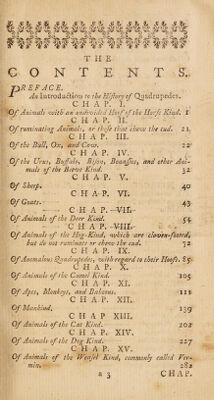 THE
CONTENTS.
PREFACE.
An Introduction to the History of Quadrupedes.
CHAP. I.
Of Animals with an undivided Hoof of the Horse Kind. 1
CHAP. II.
Of ruminating Animals, or those that chew the cud. 21
CHAP. III.
Of the Bull, Ox, and Cow. 22
CHAP. IV.
Of the Urus, Buffalo, Bison, Bonasus, and other Ani-
mals of the Beeve Kind. 32
CHAP. V.
Of Sheep. 40
CHAP. VI.
Of Goats. 43
CHAP. VII.
Of Animals of the Deer Kind. 54
CHAP. VIII.
Of Animals of the Hog-Kind, which are cloven-footed,
but do not ruminate or chew the cud. 72
CHAP. IX.
Of Anomalous Quadrupedes, with regard to their Hoofs. 85
CHAP. X.
Of Animals of the Camel Kind. 105
CHAP. XI.
Of Apes, Monkeys, and Baboons. 111
CHAP. XII.
Of Mankind. 139
CHAP XIII.
Of Animals of the Cat Kind. 202
CHAP. XIV.
Of Animals of the Dog Kind. 227
CHAP. XV.
Of Animals of the Weasel Kind, commonly called Ver-
min. 282
a 3 CHAP.